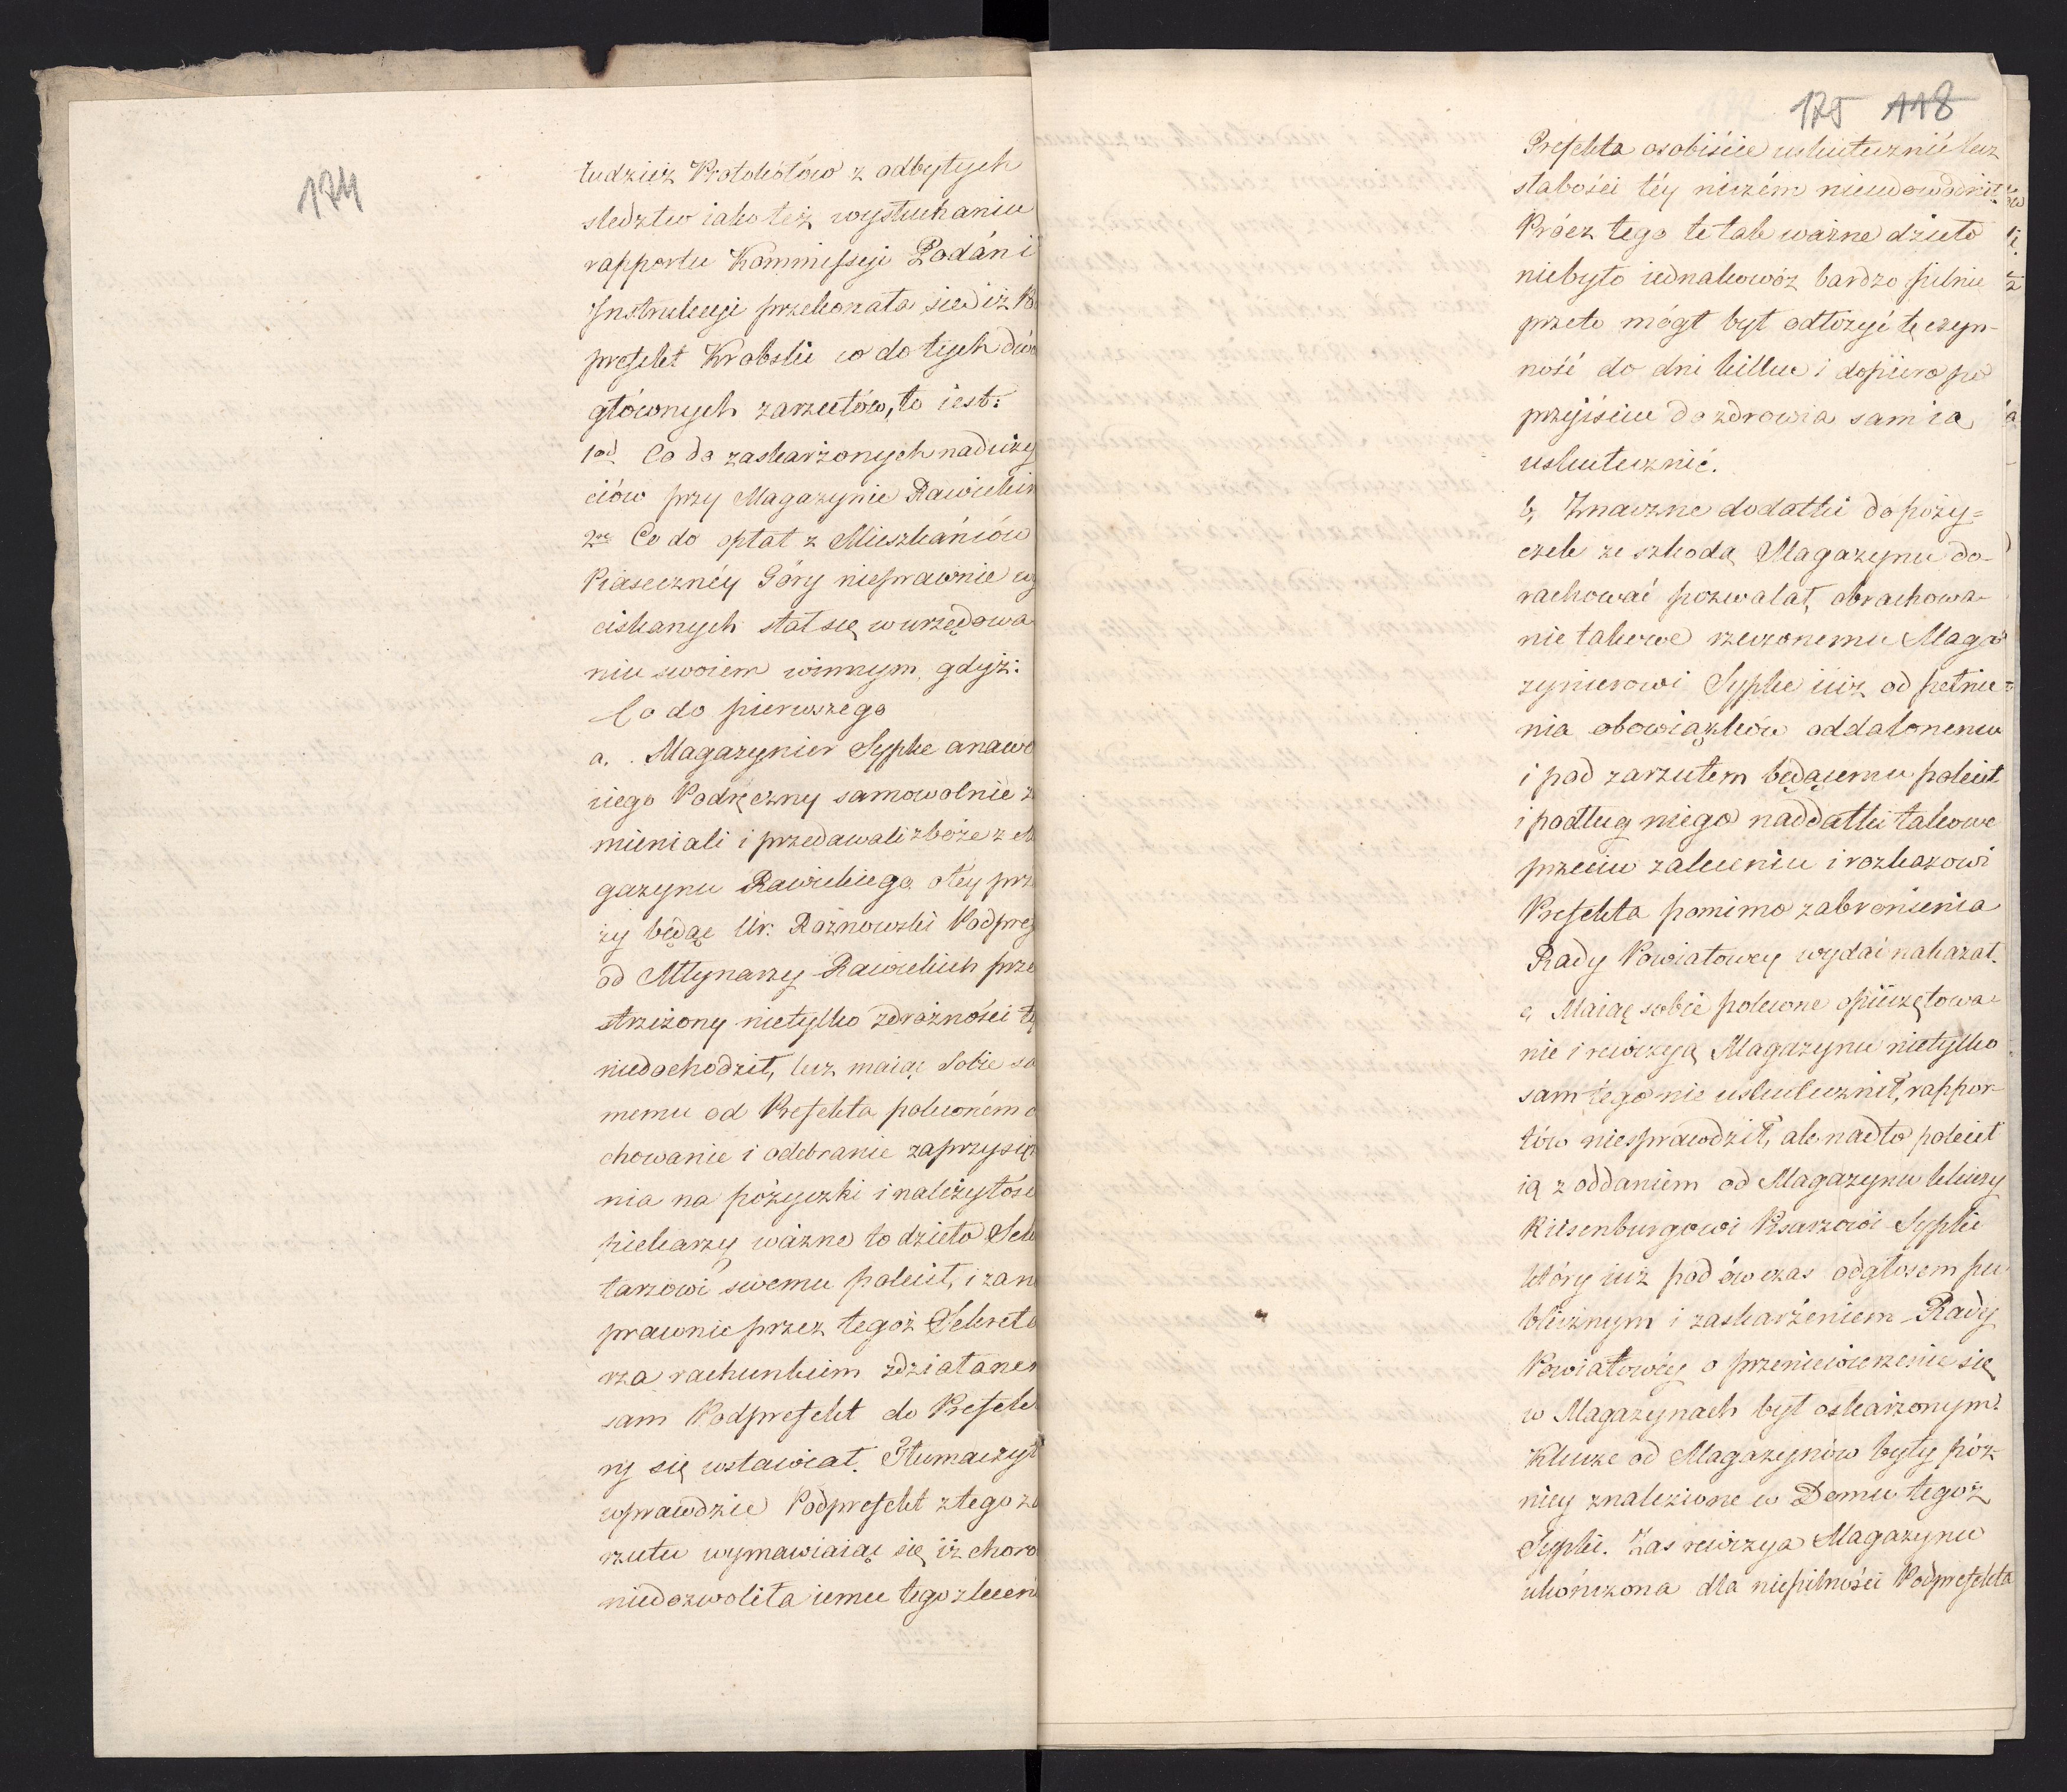 174
tudzież Protokołów z odbytych
sledztw iako też wysłuchaniu
rapportu Kommissyi Podań i
Instrukcyi przekonała się iż Po
prefekt Krobski co do tych dwó
głównych zarzutów, to iest:
1od Co do zaskarżonych naduży
ciów przy Magazynie Rawickim
2re Co do opłat z Mieszkańców
Piaseczney Góry nieprawnie wy
ciskanych stał się w urzędowa
niu swoiem winnym, gdyż:
Co do pierwszego
a. Magazynier Sypke a nawe
iego Podręczny samowolnie z
mieniali i przedawali zboże z M
gazynu Rawickiego o tey prze
ży będąc Ur. Rożnowski Podpref
od Młynarzy Rawickich prze
strzeżony nietylko zdrożności tę
niedochodził, lecz maiąc sobie sa
memu od Prefekta poleconém o
chowanie i odebranie zaprzysięż
nia na pożyczki i należytośc
piekarzy ważne to dzieło Sek
tarzowi swemu polecił, i zan
prawnie przez tegoż Sekreta
rza rachunkiem zdziałanem
sam Podprefekt do Prefek
ry się wstawiał. Tłumaczył
wprawdzie Podprefekt z tego za
rzutu wymawiaiąc się iż choro
niedozwoliła iemu tego zlecen
175 118
Prefekta osobiście uskutecznić lecz
słabości téy niczém nieudowodnił.
Prócz tego te tak ważne dzieło
niebyło iednakowoż bardzo pilnie
przeto mógł był odłożyć tę czyn-
ność do dni kilku i dopiero po
przyjściu do zdrowia sam ią
uskutecznić.
b, Znaczne dodatki do poży=
czek ze szkodą Magazynu do-
rachować pozwalał, obrachowa-
nie takowe rzeczonemu Maga
zynierowi Sypke iuż od pełnie=
nia obowiązków oddalonemu
i pod zarzutem będącemu polecił
i podług niego naddatki takowe
przeciw zaleceniu i rozkazowi
Prefekta pomimo zabronienia
Rady Powiatowey wydać nakazał.
c, Maiąc sobie polecone opieczętowa-
nie i rewizyą Magazynu nietylko
sam tego nie uskutecznił, rappor-
tów niesprawdził, ale nadto polecił
ią z oddaniem od Magazynu kluczy
Riesenburgowi Pisarzowi Sypki
który iuż pod ów czas odgłosem pu-
blicznym i zaskarżeniem Rady
Powiatowéy o przeniewierzenie się
w Magazynach był oskarżonym.
Klucze od Magazynów były póź-
niey znalezione w Domu tegoż
Sypki. Zas rewizya Magazynu
ukończona dla niepilności Podprefekta